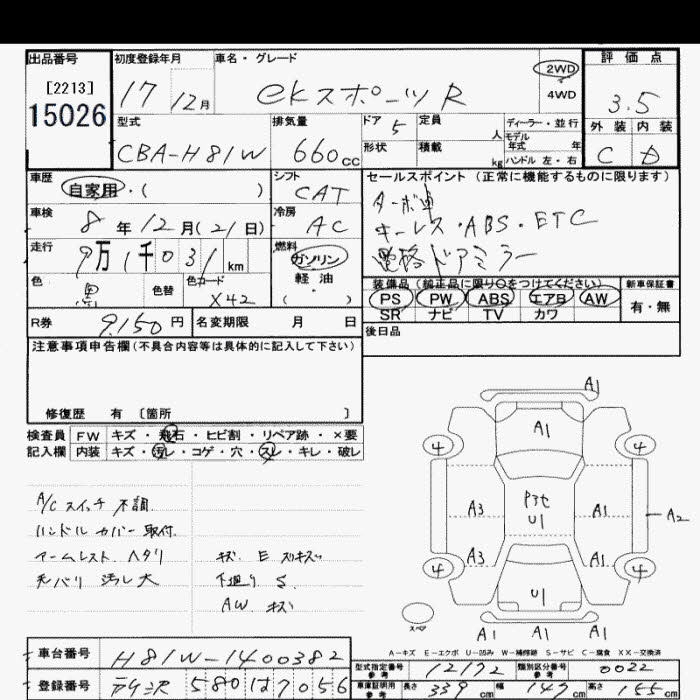 出品番号
[2213]
15026
初度登録年月
17 12月
車名・グレード
ekスポーツR
2WD
4WD
評価点
3.5
外装 内装
C D
型式
CBA-H81W
排気量
660cc
ドア 5
定員 人
形状
積載 kg
ディーラー・並行
モデル年式 年
ハンドル 左・右
車歴
自家用・( )
シフト
CAT
セールスポイント (正常に機能するものに限ります)
ターボ車
キーレス・ABS・ETC
電格ドアミラー
車検
8年12月(21日)
冷房
AC
走行
9万1千031km
燃料
ガソリン
軽油・
( )
色
黒
色替
色コード
X42
装備品 (純正品に限り○をつけてください)
PS PW ABS エアB AW
SR ナビ TV カワ
新車保証書
有・無
R券 9,150円
名変期限 月 日
後日品
注意事項申告欄(不具合内容等は具体的に記入して下さい)
修復歴 有 〔箇所 〕
検査員記入欄
FW キズ・飛石・ヒビ割・リペア跡・×要
内装 キズ・汚レ・コゲ・穴・スレ・キレ・破レ
A/Cスイッチ 不調
ハンドルカバー取付
アームレスト ヘタリ
天バリ 汚レ大
キズ E スリキズ
下廻り S
AW キズ
A1
4 A1 4
A3 A1 A2
U1
A3 A1
4 U1 4
スペア
A1 A1 A1
A-キズ E-エクボ U-凹み W-補修跡 S-サビ C-腐食 XX-交換済
車台番号
H81W-1400382
型式指定番号 参考
12172
類別区分番号 参考
0022
登録番号
580 は 7056
車庫証明用 参考
長さ 339cm 幅 147cm 高さ
cm